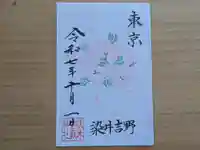 東京
染井吉野
令和七年十月一日